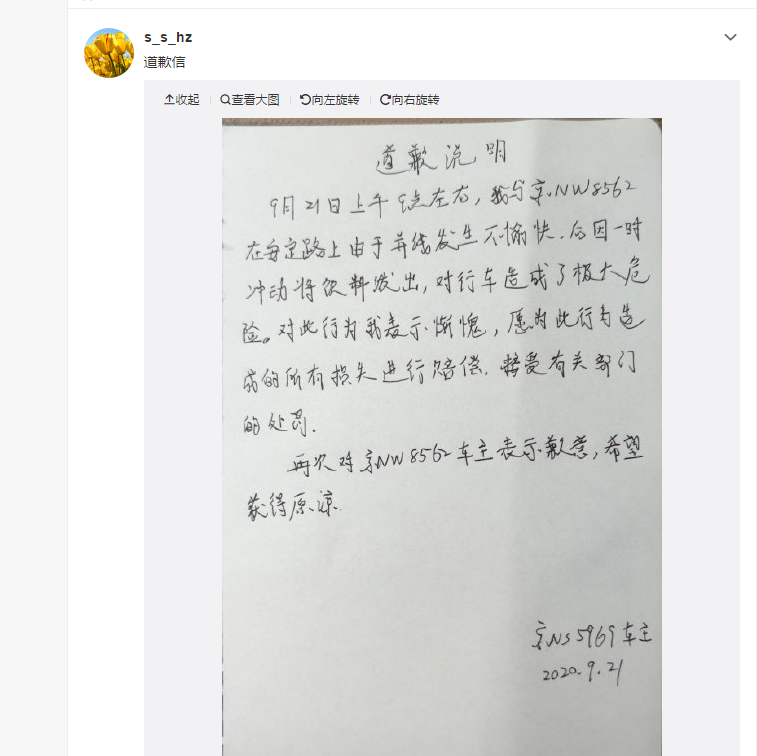 s_s_hz
道歉信
收起 查看大图 向左旋转 向右旋转
道歉说明
9月21日上午9点左右，我与京NW8562
在安定路上由于并线发生不愉快.后因一时
冲动将饮料泼出，对行车造成了极大危
险。对此行为我表示惭愧，愿为此行为造
成的所有损失进行赔偿.接受有关部门
的处罚.
再次对京NW8562车主表示歉意，希望
获得原谅.
京NS5969车主
2020.9.21